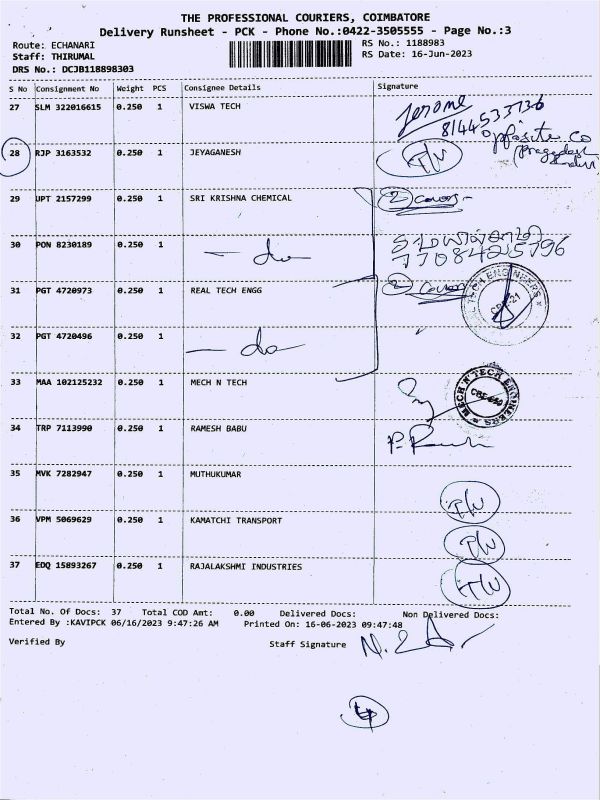 THE PROFESSIONAL COURIERS, COIMBATORE
Delivery Runsheet - PCK - Phone No.:0422-3505555 - Page No.:3
Route: ECHANARI RS No.: 1188983
Staff: THIRUMAL RS Date: 16-Jun-2023
DRS No.: DCJB118898303
S No Consignment No Weight PCS Consignee Details Signature
27 SLM 322016615 0.250 1 VISWA TECH Jerome
8144533736
opposite co
28 RJP 3163532 0.250 1 JEYAGANESH T/W
29 UPT 2157299 0.250 1 SRI KRISHNA CHEMICAL 2 cover
30 PON 8230189 0.250 1 — do
7708425796
31 PGT 4720973 0.250 1 REAL TECH ENGG 2 cover
32 PGT 4720496 0.250 1 — do
33 MAA 102125232 0.250 1 MECH N TECH MECH 'N' TECH ENGINEERS
34 TRP 7113990 0.250 1 RAMESH BABU
35 MVK 7282947 0.250 1 MUTHUKUMAR T/W
36 VPM 5069629 0.250 1 KAMATCHI TRANSPORT T/W
37 EDQ 15893267 0.250 1 RAJALAKSHMI INDUSTRIES T/W
Total No. Of Docs: 37 Total COD Amt: 0.00 Delivered Docs: Non Delivered Docs:
Entered By :KAVIPCK 06/16/2023 9:47:26 AM Printed On: 16-06-2023 09:47:48
Verified By Staff Signature